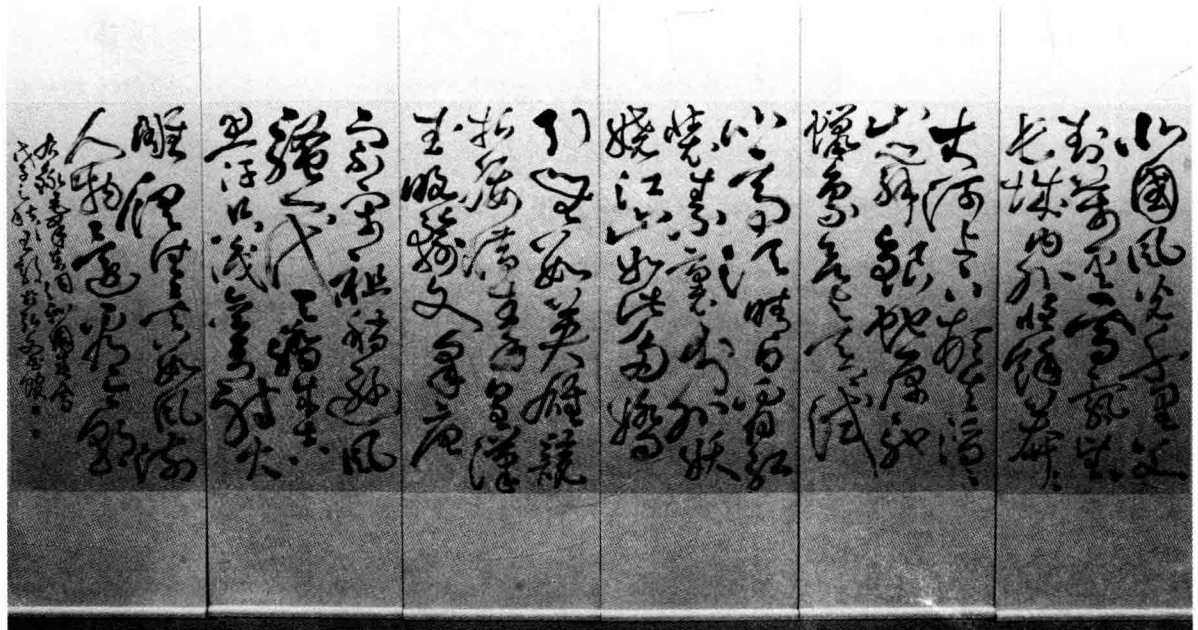 北國風光千里冰
封萬里雪飄望
長城內外惟餘莽〻
大河上下頓失滔〻
山舞銀蛇原馳
蠟象欲與天公試
比高須晴日看紅
裝素裹分外妖
嬈江山如此多嬌
引無數英雄競
折腰惜秦皇漢
武略輸文采唐
宗宋祖稍遜風
騷一代天驕成吉
思汗只識彎弓射大
雕俱往矣數風流
人物還看今朝
右錄毛澤東同志沁園春雪
戊子之秋